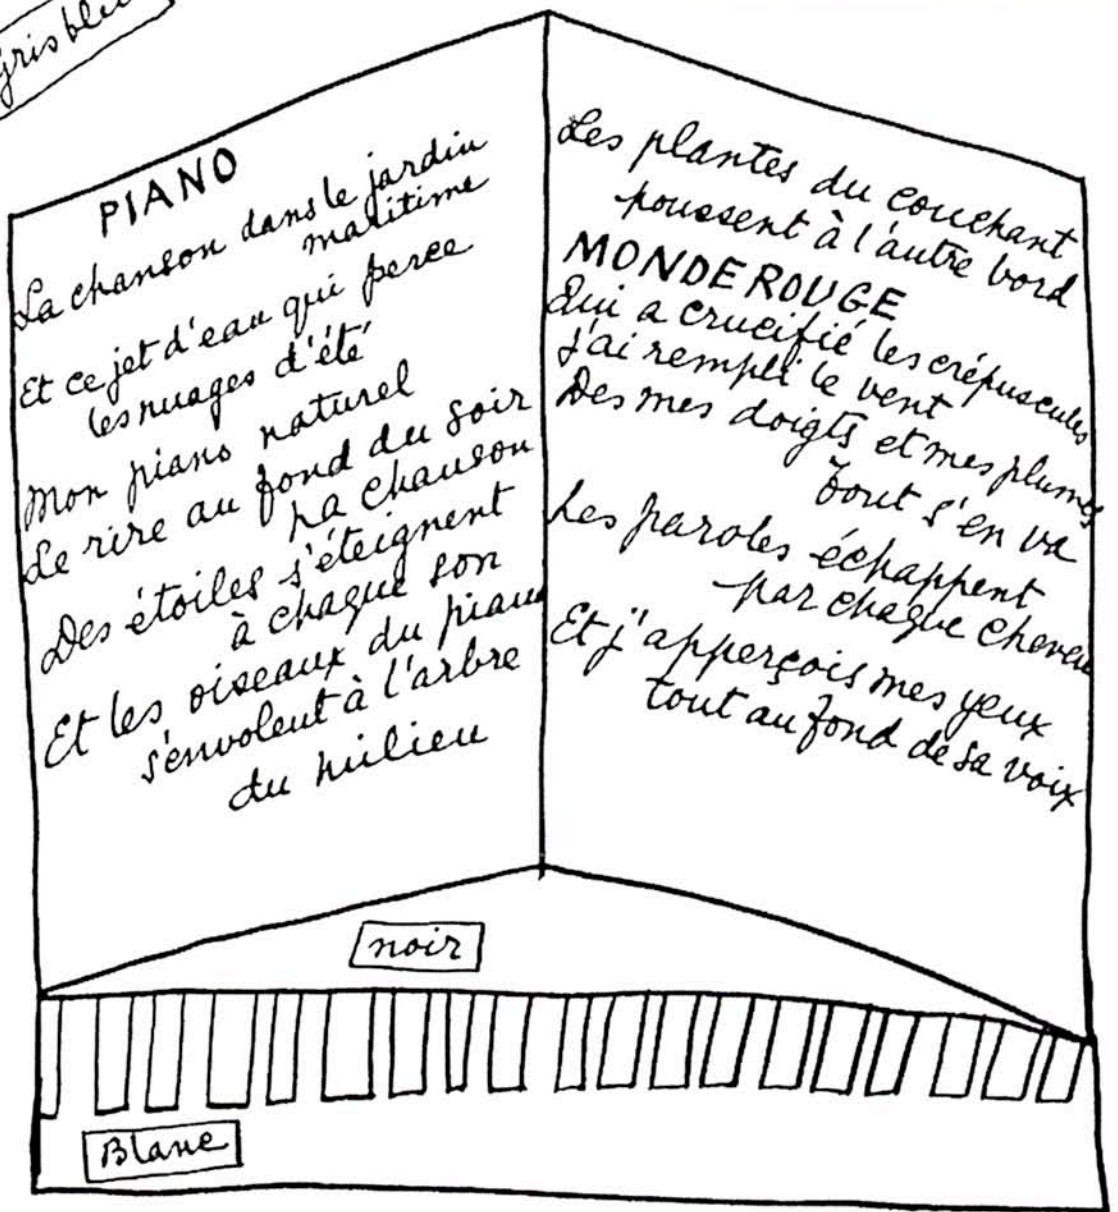 Gris bleu
PIANO
La chanson dans le jardin
maritime
Et ce jet d'eau qui perce
les nuages d'été
Mon piano naturel
Le rire au fond du soir
La chanson
Des étoiles s'éteignent
à chaque son
Et les oiseaux du piano
s'envolent à l'arbre
du milieu
Les plantes du couchant
poussent à l'autre bord
MONDE ROUGE
Qui a crucifié les crépuscules
J'ai rempli le vent
Des mes doigts et mes plumes
Tout s'en va
Les paroles échappent
par chaque cheveu
Et j'apperçois mes yeux
tout au fond de sa voix
noir
Blanc